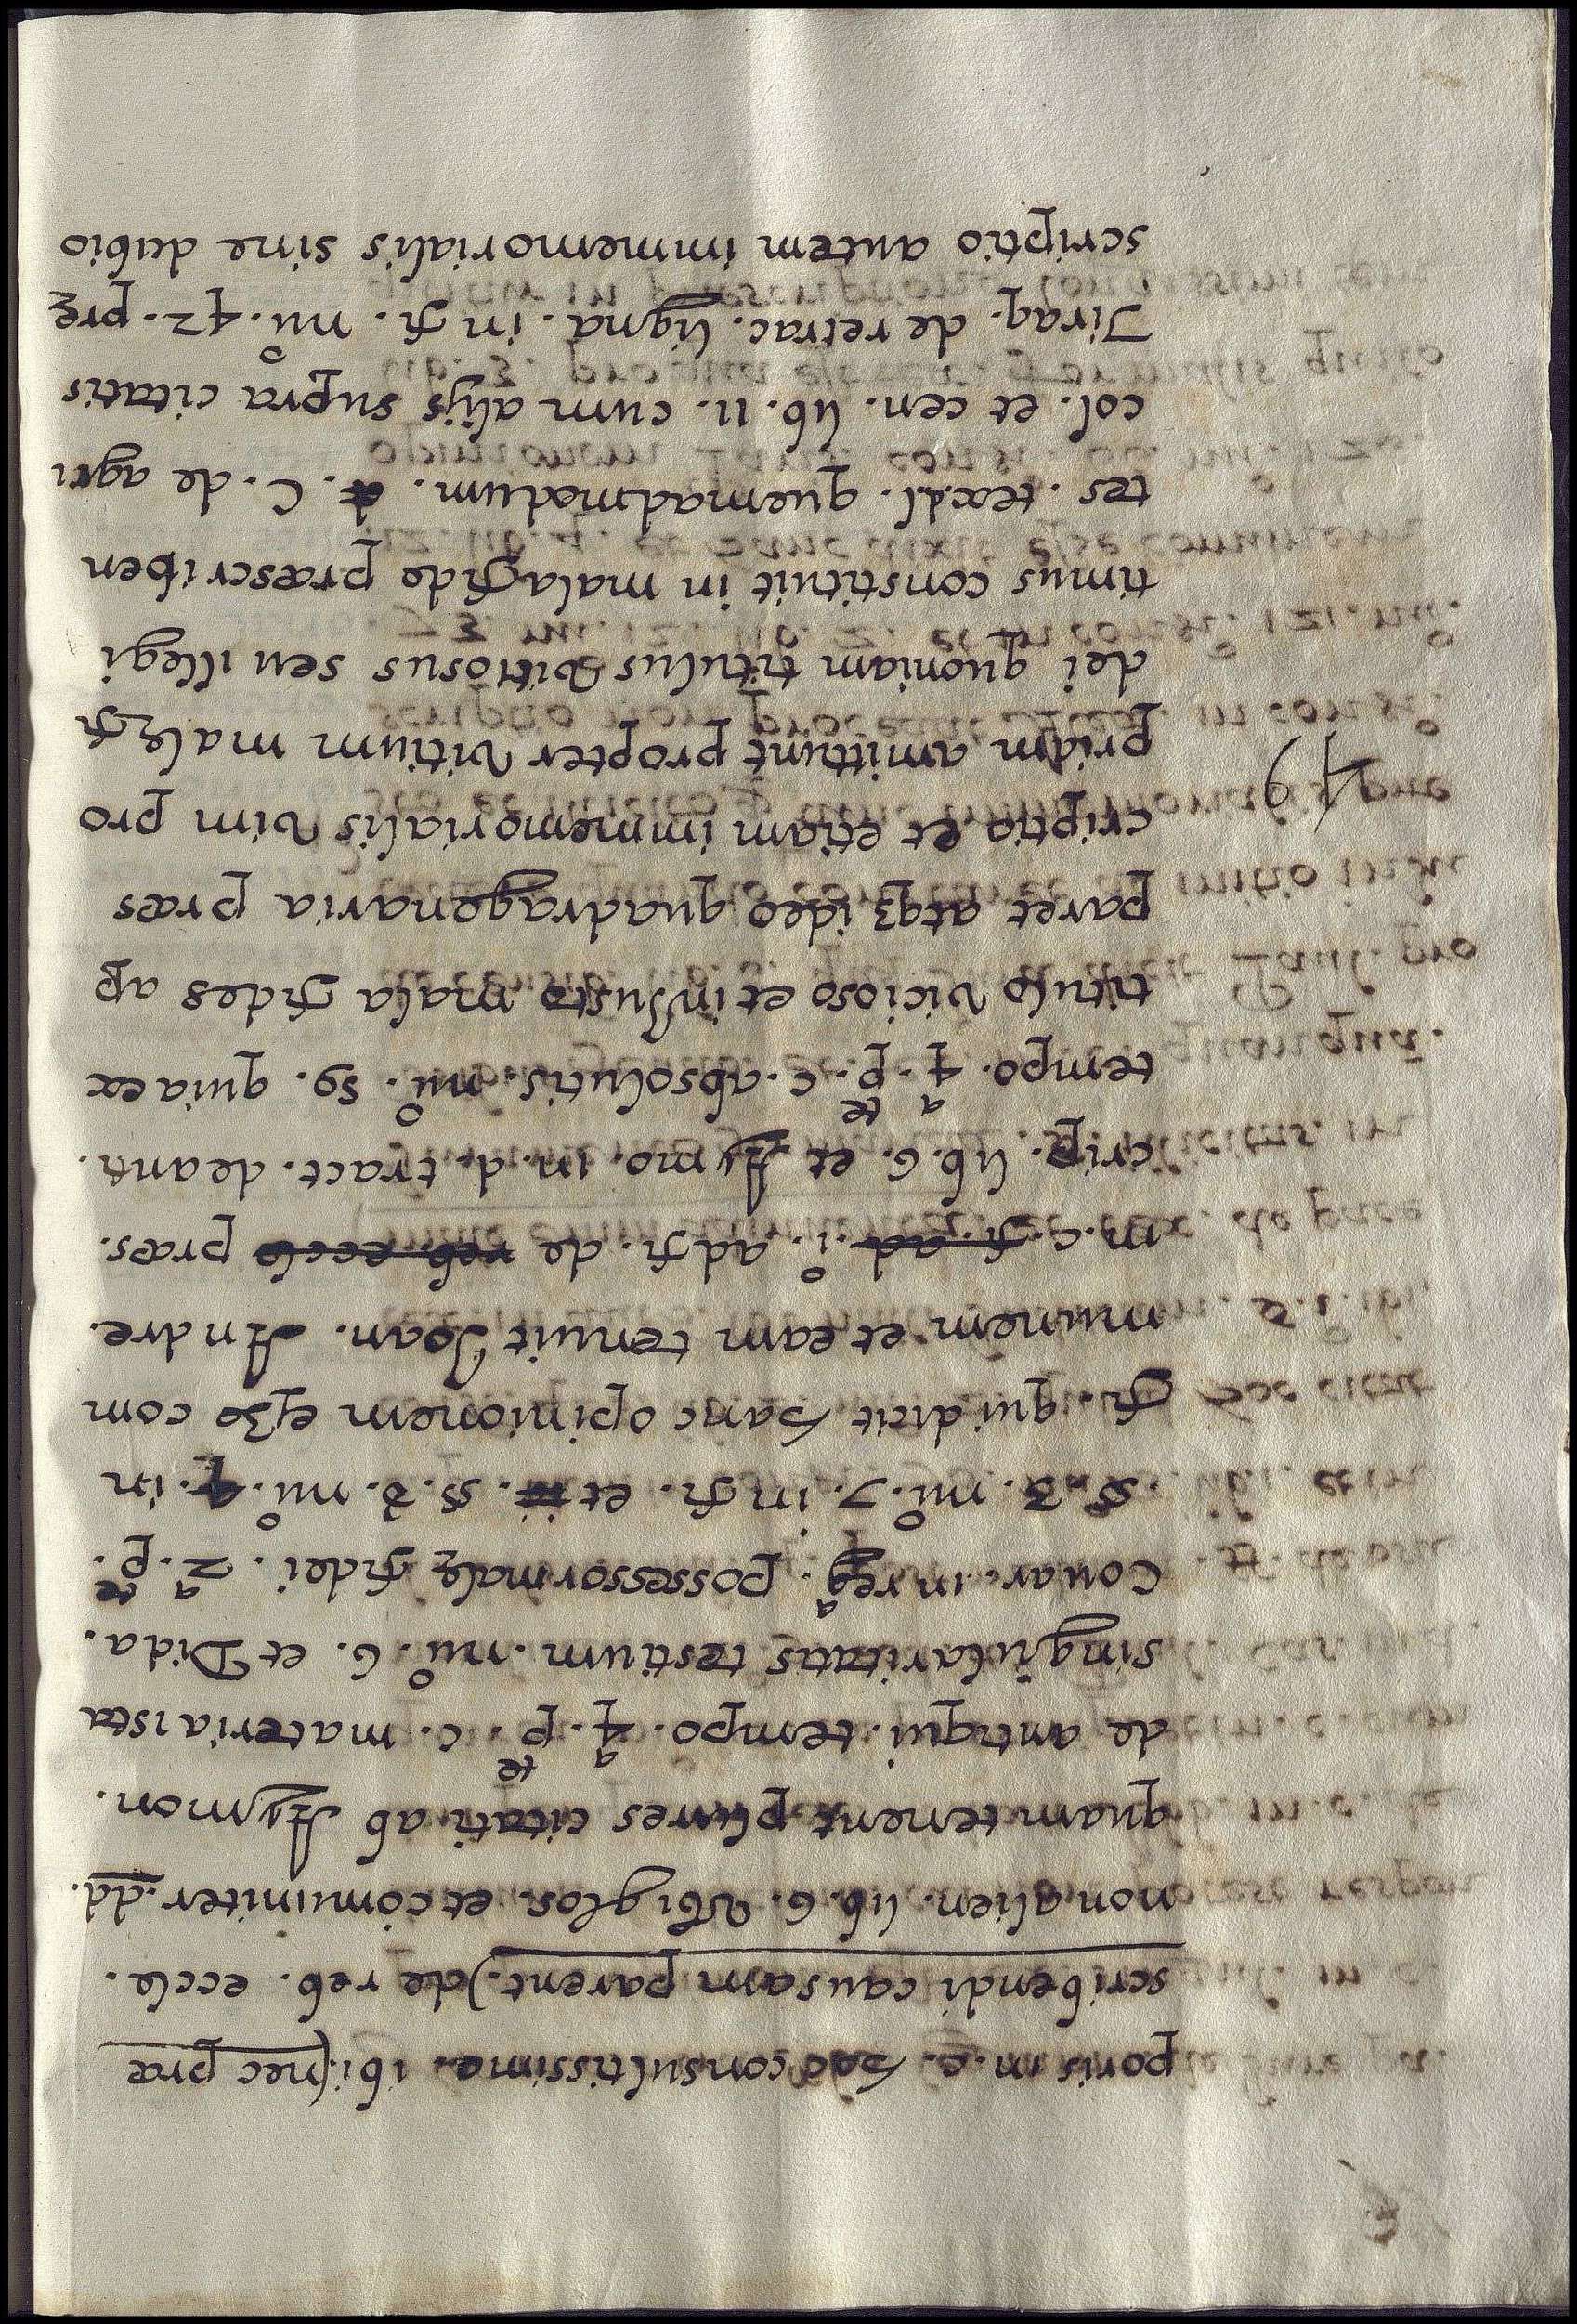 poris in. c. hac consultissima. ibi (nec præ
scribendi causam parent.) de reb. eccle.
non alien. lib. 6. Vbi glos. et cõmuniter. dd.
quam tenent plures citati ab Aymon.
de antiqui. tempo. 4.ª p.te c. materia ista
singularitatis testium. nu.º 6. et Dida.
Couar. in reg.ª possessor malę fidei. 2.ª p.te
§. 3. nu.º 7. in fi. et . §. 3. nu.º 4. in
fi. qui dicit hanc opinionem eẽ com
munem. et eam tenuit Joan. Andre.
in. c. fi. ad .i.º ad fi. de reb. eccle præs.
crip. lib. 6. et Aymo. in. d. tract. de anti.
tempo. 4.ª p.te c. absolutis. nu.º 59. quia ex
titulo vicioso et iniusto mala fides ap
paret atqз ideo quadragenaria præs
criptio et etiam immemorialis vim pro
49
priam amittunt propter vitium malę fi
dei quoniam titulus vitiosus seu illegi
timus constituit in mala fide præscriben
tes. tex. l. quemadmodum. C. de agri
col. et cen. lib. 11. cum alijs supra citatis
Tiraq. de retrac. ligna. in fi. nu.º 42. prę
scriptio autem immemorialis sine dubio